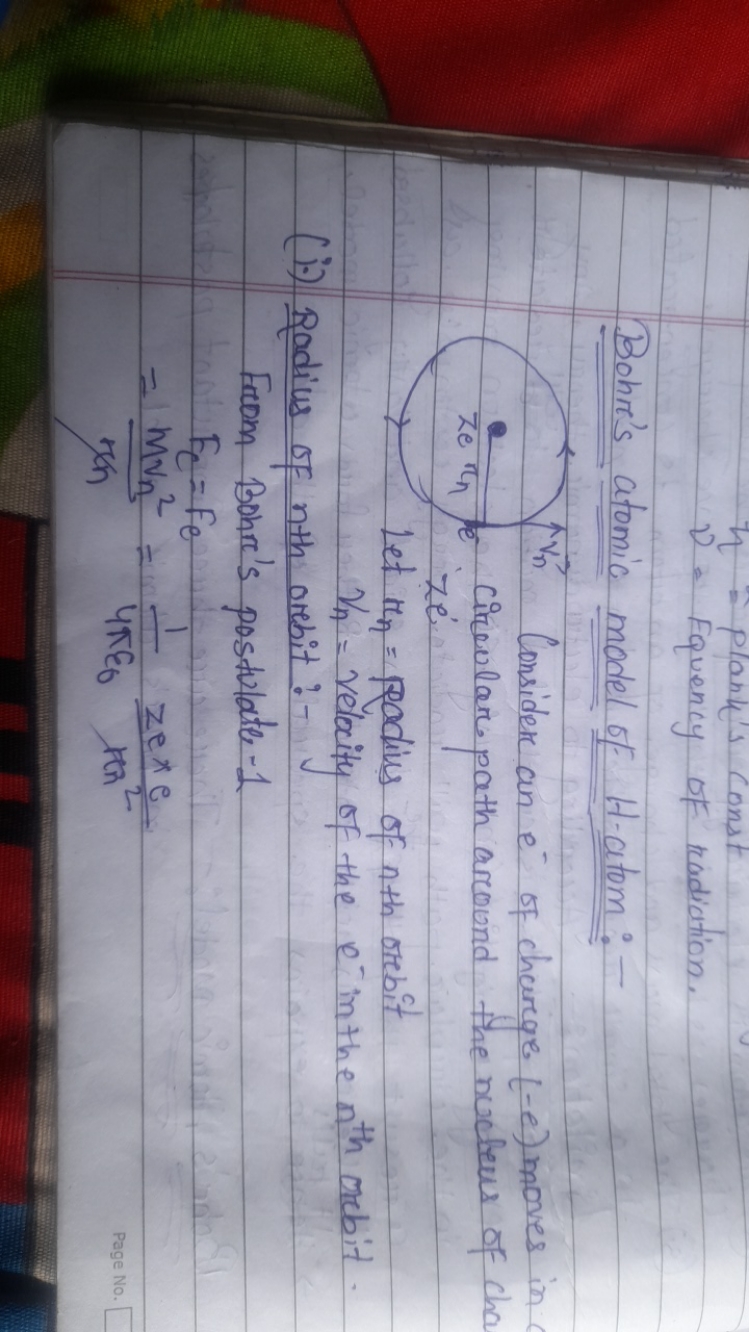 h = plank's const
ν = Fquency of radiation.
Bohr's atomic model of H-atom :-
Consider an e⁻ of charge (-e) moves in
circular path around the nucleus of cha
ze
vn
ze rn e
Let rn = Radius of nth orbit
vn = velocity of the e⁻ in the nth orbit.
(i) Radius of nth orbit :-
From Bohr's postulate-1
Fc = Fe
= mvn²/rn = 1/4πε₀ ze×e/rn²
Page No.